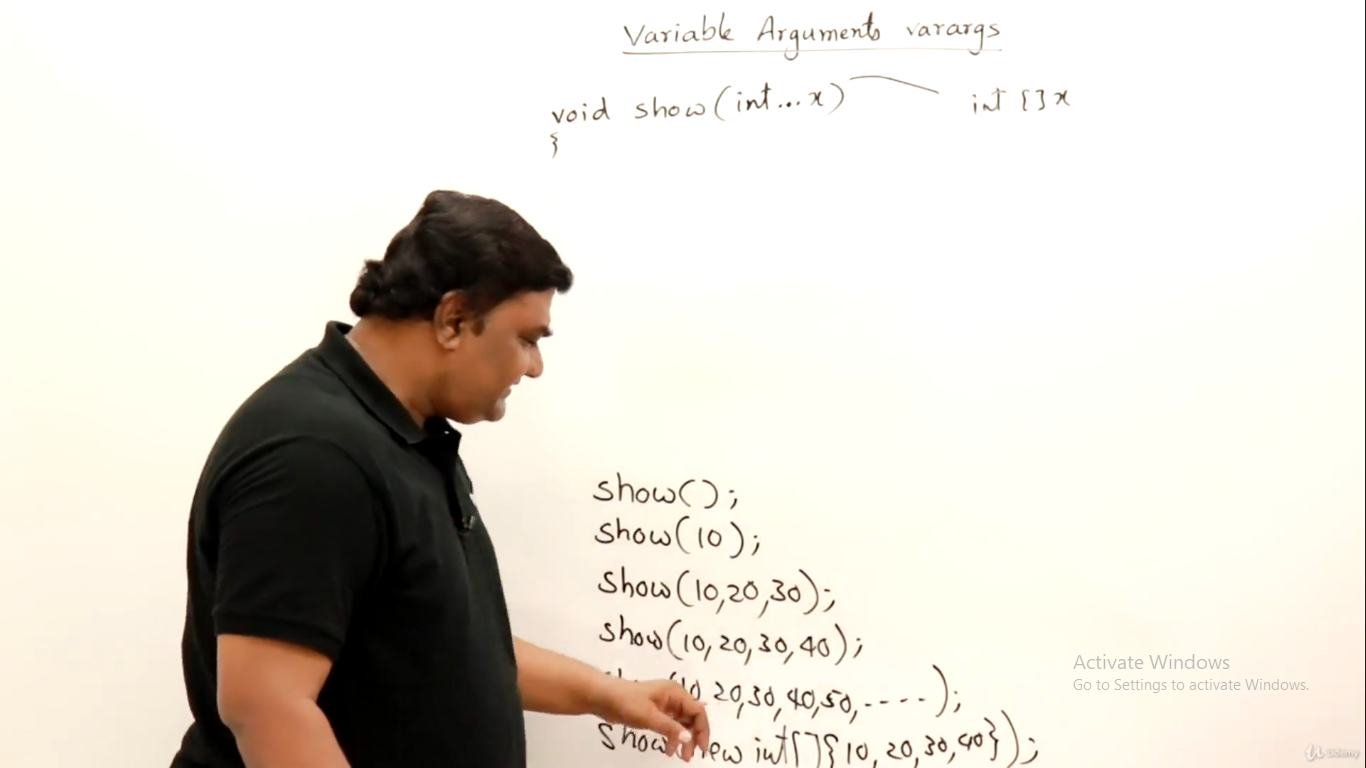 Variable Arguments varargs
void show(int...x) int []x
{
show();
show(10);
show(10,20,30);
show(10,20,30,40);
(10,20,30,40,50,-----);
show new int[]{10,20,30,40});
Activate Windows
Go to Settings to activate Windows.
Udemy